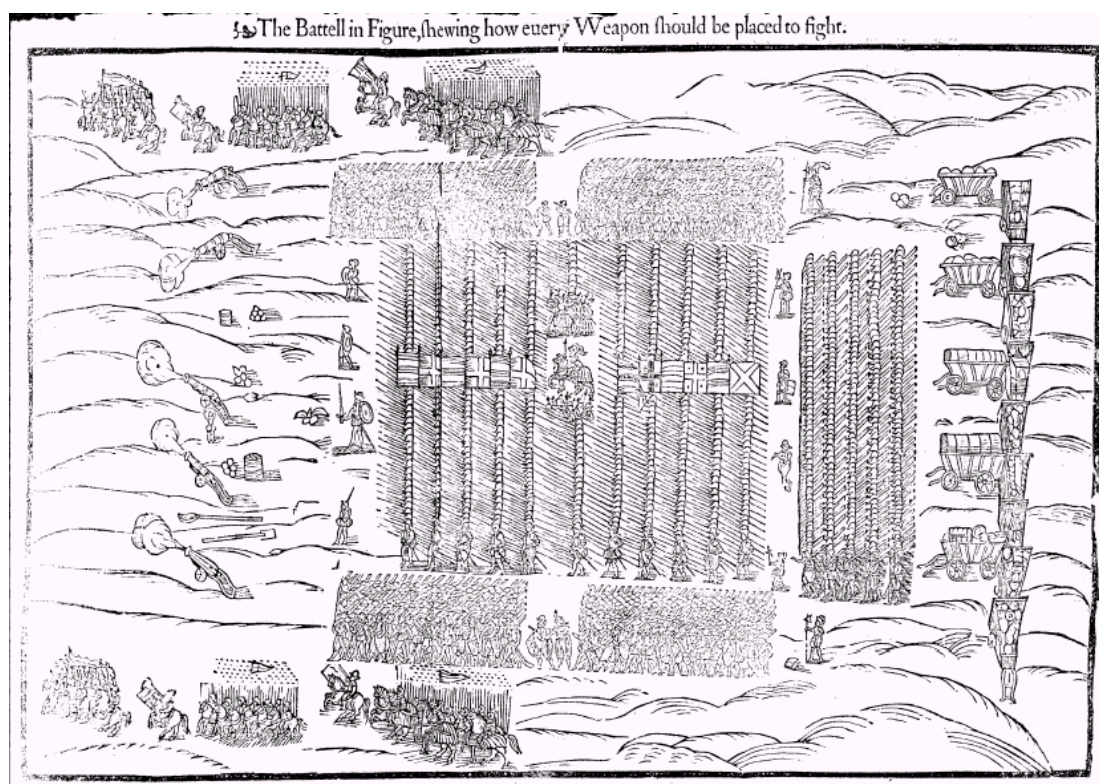 The Battell in Figure, ſhewing how euery Weapon ſhould be placed to fight.